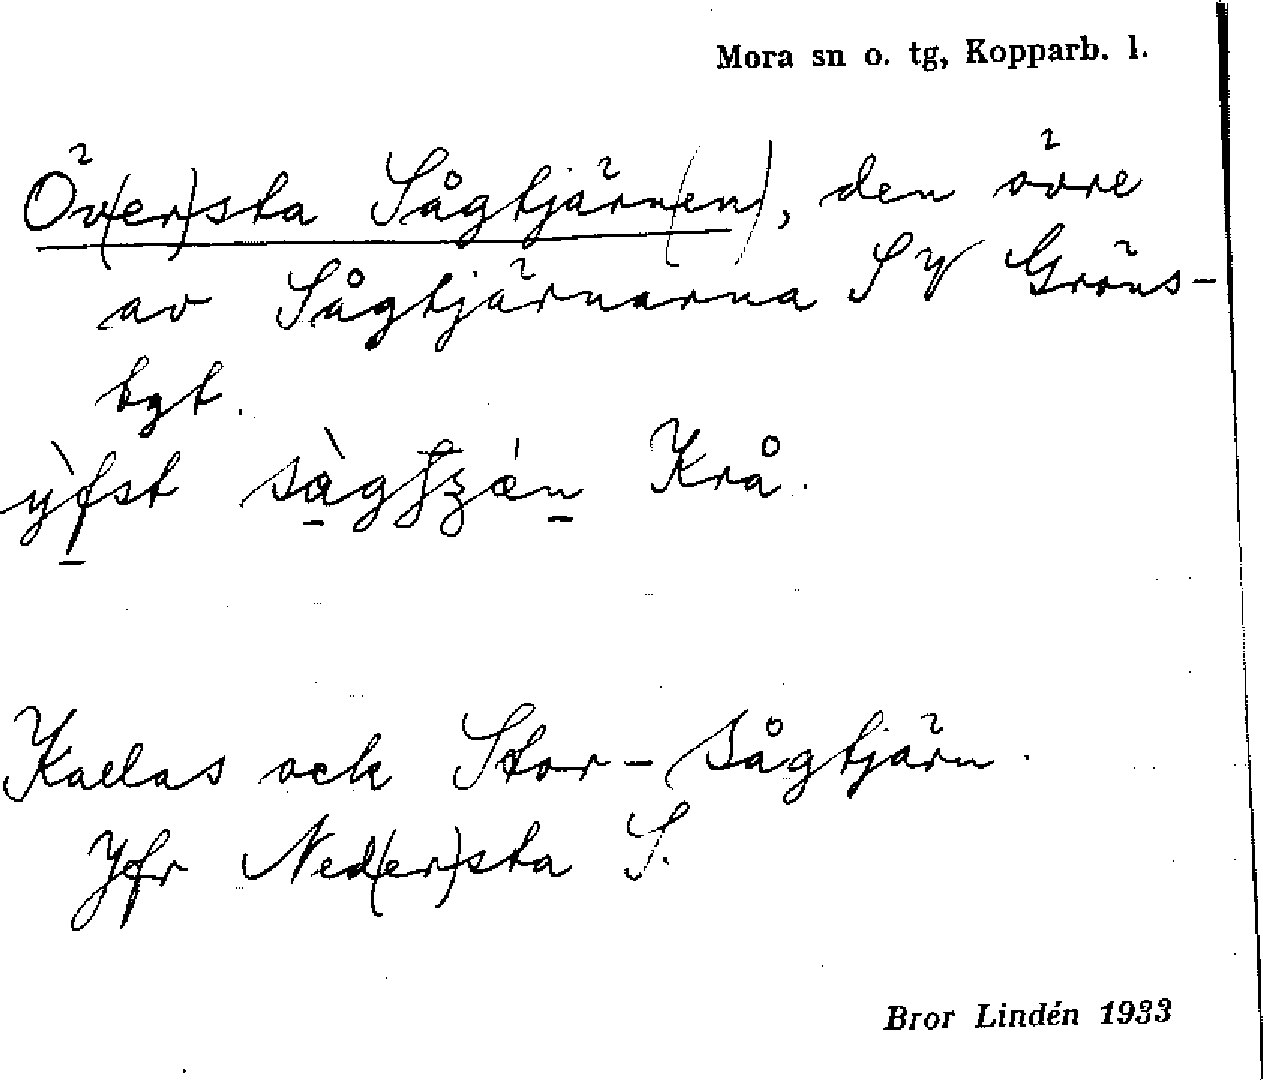 Mora sn o. tg, Kopparb. l.
Öv(er)sta Sågtjärn(en), den övre
av Sågtjärnarna SV Gröns-
bgt.
Krå.
Kallas ock Stor-Sågtjärn.
Jfr Ned(er)sta S.
Bror Lindén 1933